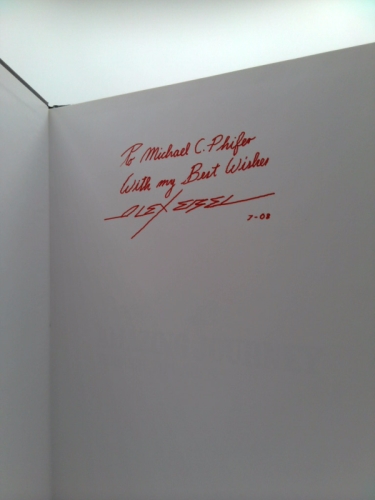 To Michael C. Phifer
With my Best Wishes
ALEX EBEL
7-08